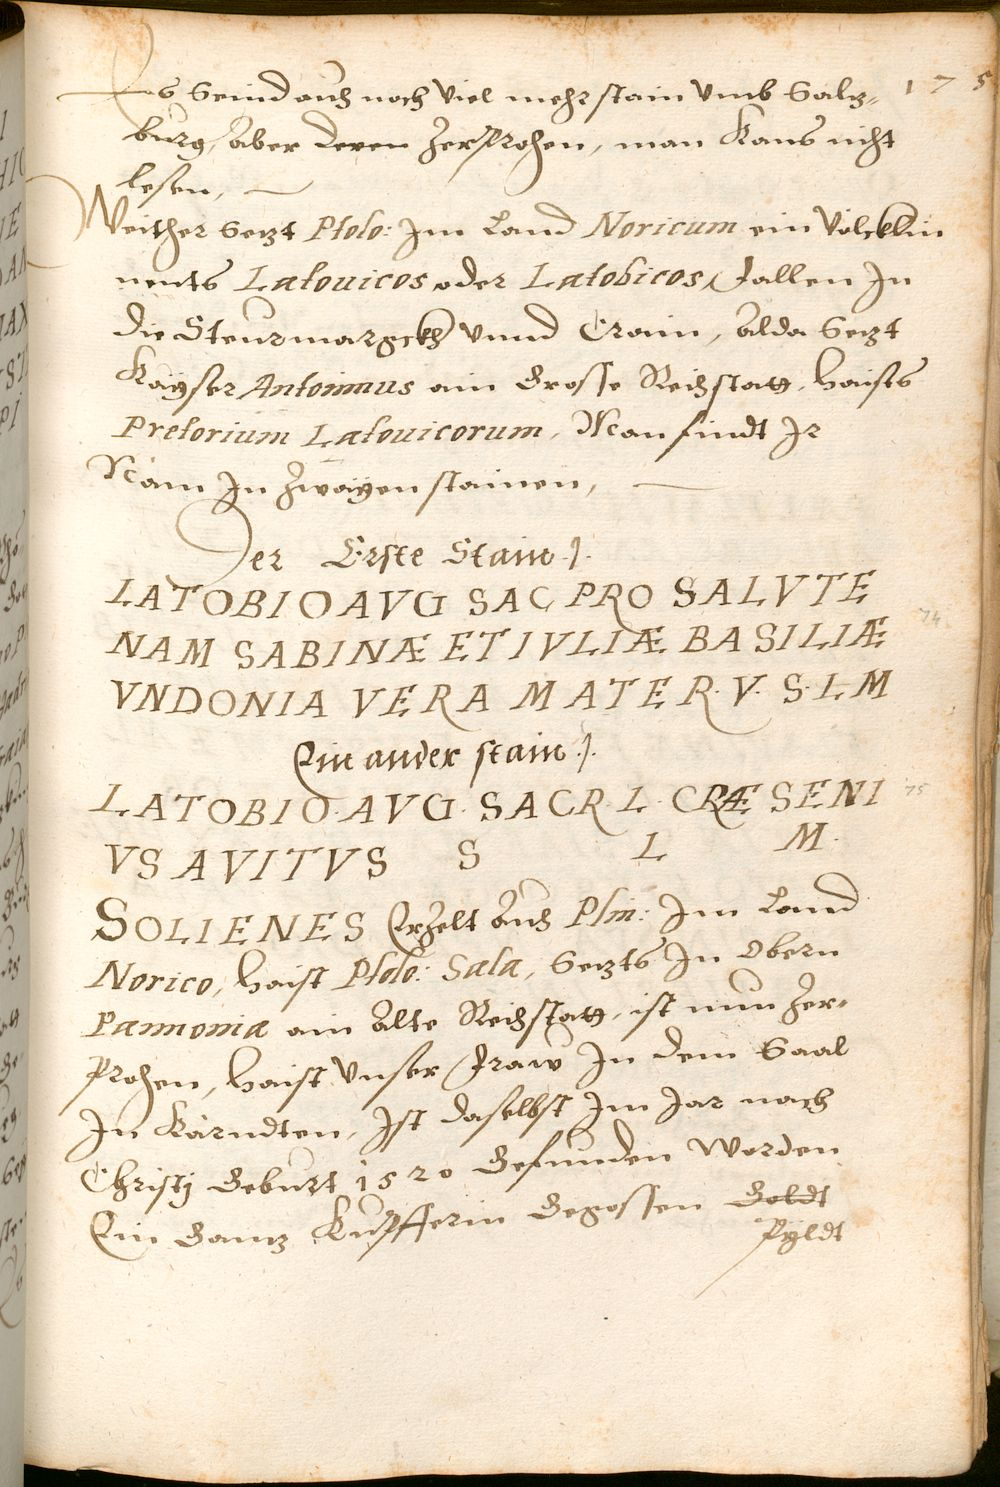 175
Es Seind auch noch Viel mehr stain Vmb Saltz-
burg, aber deren Zerprochen, man Kans nicht
lesen,
Weither Setzt Ptolo: Im Land Noricum ein Völcklin
nents Latouicos oder Latobicos, Fallen In
die Steurmargckh Vnnd Crain, Alda Setzt
Kayser Antoninus ain Grosse Reichstatt, haists
Pretorium Latouicorum, Man findt Ir
Nam In Zwayen stainen,
Der Erste Stain .].
LATOBIO AVG SAC PRO SALVTE
NAM SABINÆ ET IVLIÆ BASILIÆ
74
VNDONIA VERA MATER. V. S. L M
Ein ander stain .].
LATOBIO. AVG. SACR. L. CRÆ SENI
75
VS AVITVS S L M.
SOLIENES Erzelt Auch Plin: Im Land
Norico, haist Ptolo: Sala, Setzts In Obern
Pannonia ain Alte Reichstatt, ist nun Zer-
prochen, haist Vnser Fraw In dem Saal
In Kärndten, Ist daselbst Im Jar nach
Christj Geburt 1520 Gefunden Worden
Ein Gantz Kupfferin Gegossen Goldt
Pyldt